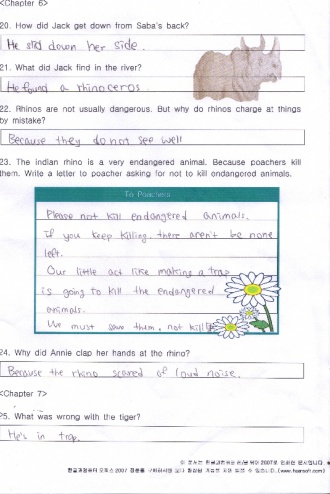 <Chapter 6>
20. How did Jack get down from Saba's back?
He slid down her side.
21. What did Jack find in the river?
He found a rhinoceros.
22. Rhinos are not usually dangerous. But why do rhinos charge at things
by mistake?
Because they do not see well
23. The indian rhino is a very endangered animal. Because poachers kill
them. Write a letter to poacher asking for not to kill endangered animals.
To Poachers
Please not kill endangered animals.
If you keep killing, there aren't be none
left.
Our little act like making a trap
is going to kill the endangered
animals.
We must save them, not kill
24. Why did Annie clap her hands at the rhino?
Because the rhino scared of loud noise.
<Chapter 7>
25. What was wrong with the tiger?
He's in trap.